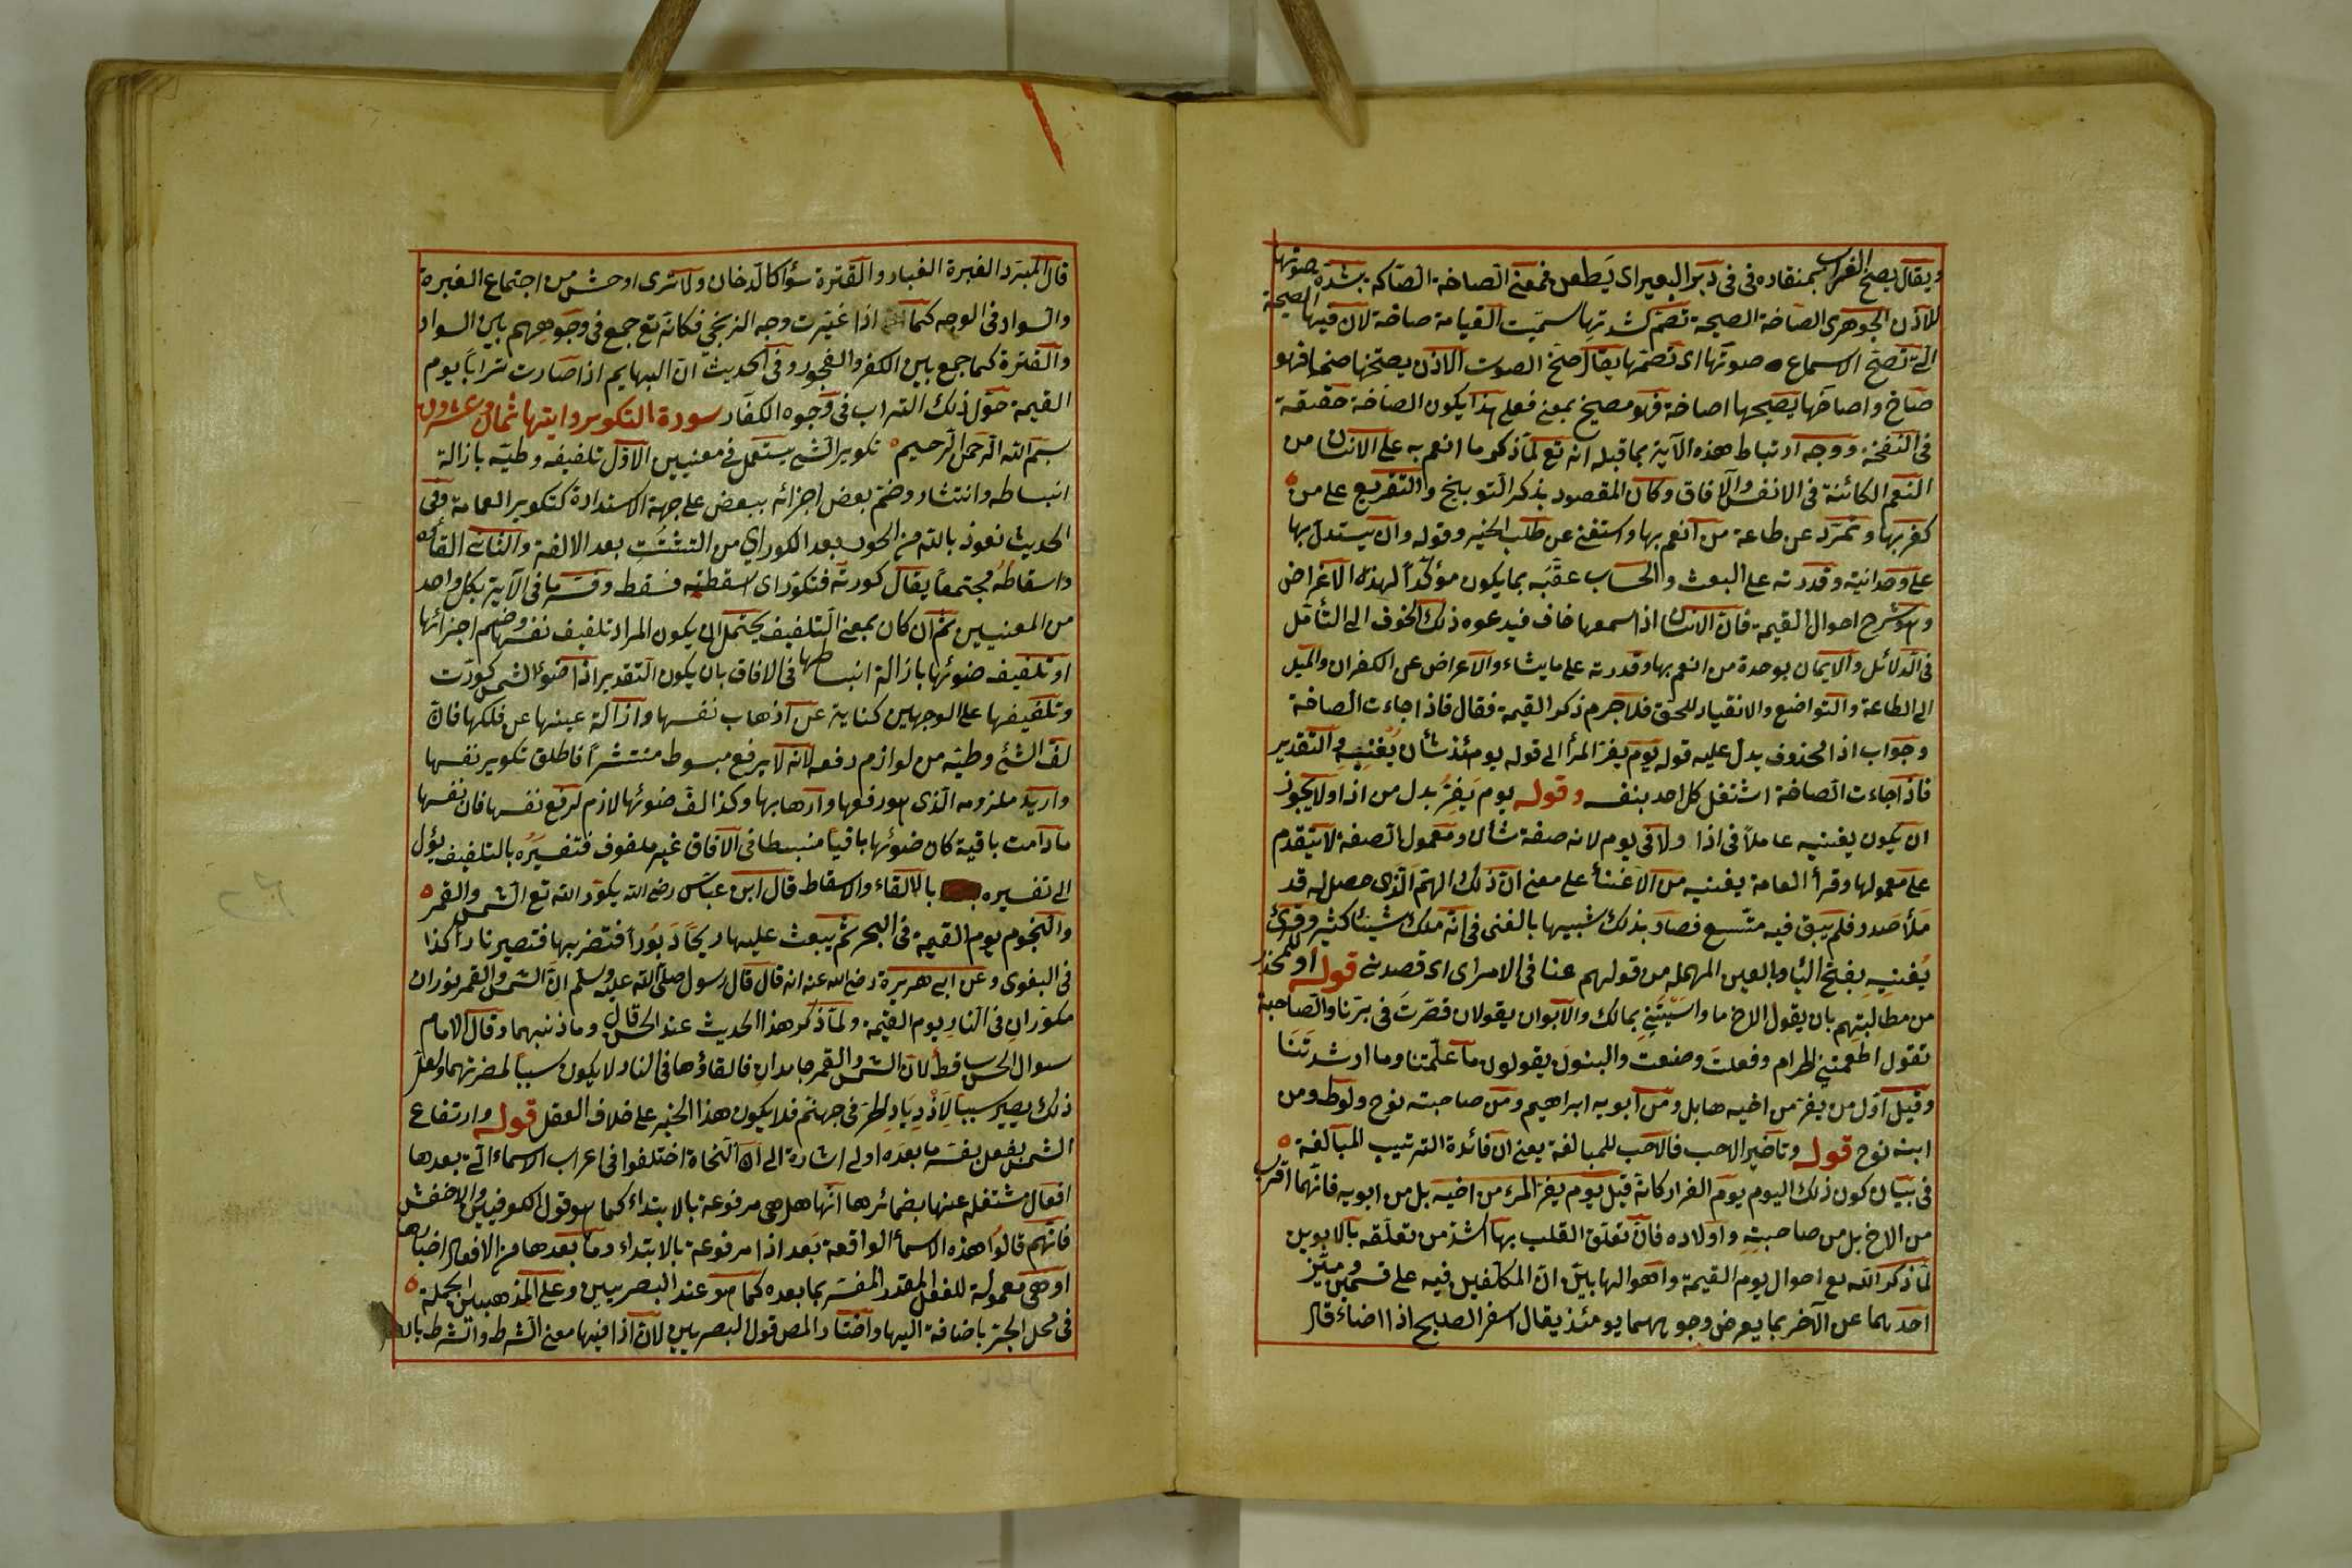 ويقال يصخ الغراب بمنقاره فى دبر البعير اى يطعن فمعنى الصاخة الصاكة بشدة صوتها
للاذن الجوهرى الصاخة الصيحة تصم لشدتها سميت القيامة صاخة لان فيها الصيحة
التى تصخ الاسماع صوتها اى تصمها يقال صخ الصوت الاذن يصخها صخا فهو
صاخ واصاخها يصيخها اصاخة فهو مصيخ بمعنى فعلى هذا يكون الصاخة حقيقة
فى النفخة ووجه ارتباط هذه الآية بما قبله انه تع لما ذكر ما انعم به على الانسان من
النعم الكائنة فى الانفس والآفاق وكان المقصود بذكر التوبيخ والتقريع على من
كفر بها وتمرد عن طاعة من انعم بها واستغنى عن طلب الخير وقوله وان يستدل بها
على وحدانيته وقدرته على البعث والحساب عقبه بما يكون مؤكدا لهذه الاغراض
وهو شرح احوال القيمة فان الانسان اذا سمعها خاف فيدعوه ذلك الخوف الى التأمل
فى الدلائل والايمان بوحدة من انعم بها وقدرته على ما يشاء والاعراض عن الكفران والميل
الى الطاعة والتواضع والانقياد للحق فلا جرم ذكر القيمة فقال فاذا جاءت الصاخة
وجواب اذا محذوف يدل عليه قوله يوم يفر المرأ الى قوله يومئذ شأن يغنيه والتقدير
فاذا جاءت الصاخة اشتغل كل احد بنفسه وقوله يوم يفر بدل من اذا ولا يجوز
ان يكون يغنيه عاملا فى اذا ولا فى يوم لانه صفة شأن ومعمول الصفة لا يتقدم
على معمولها وقرأ العامة يغنيه من الاغناء على معنى ان ذلك الهم الذى حصل له قد
ملأ صدره فلم يبق فيه متسع فصار بذلك شبيها بالغنى فى انه ملك شيئا كثيرا وقرئ
يعنيه بفتح الياء وبالعين المهملة من قولهم عنا فى الامر اى اى قصدنى قوله او للحذر
من مطالبتهم بان يقول الاخ ما واسيتنى بمالك والابوان يقولان قصرت فى برنا والصاحبة
تقول اطعمتنى الحرام وفعلت وصنعت والبنون يقولون ما علمتنا وما ارشدتنا
وقيل اول من يفر من اخيه هابل ومن ابويه ابراهيم ومن صاحبته نوح ولوط ومن
ابنه نوح قوله وتأخير الاحب فالاحب للمبالغة يعنى ان فائدة الترتيب المبالغة
فى بيان كون ذلك اليوم يوم الفرار كانه قيل يوم يفر المرء من اخيه بل من ابويه فانهما اقرب
من الاخ بل من صاحبته واولاده فان تعلق القلب بها اشد من تعلقه بالابوين
لما ذكر الله تع احوال يوم القيمة واهوالها بين ان المكلفين فيه على قسمين وميز
احدهما عن الآخر بما يعرض وجوههما يومئذ يقال اسفر الصبح اذا اضاء قال
قال المبرد الغبرة الغبار والقترة سواد كالدخان ولا ترى اوحش من اجتماع الغبرة
والسواد فى الوجه كما اذا غيرت وجه الزنجى فكانه تع جمع فى وجوههم بين السواد
والقترة كما جمع بين الكفر والفجور وفى الحديث ان البهايم اذا صارت ترابا يوم
القيمة حول ذلك التراب فى وجوه الكفار سورة التكوير وايتها ثمان وعشرون
بسم الله الرحمن الرحيم تكوير الشئ يستعمل فى معنيين الاول تلفيفه وطيه بازالة
انبساطه وانتشاره وضم بعض اجزائه ببعض على جهة الاستدارة كتكوير العمامة وفى
الحديث نعوذ بالله من الحور بعد الكور اى من التشتت بعد الالفة والثانى القاؤه
واسقاطه مجتمعا يقال كورته فتكور اى اسقطته فسقط وفسر ما فى الآية بكل واحد
من المعنيين ثم ان كان بمعنى التلفيف يحتمل ان يكون المراد تلفيف نفسها وضم اجزائها
او تلفيف ضوئها بازالة انبساطها فى الافاق بان يكون التقدير اذا ضوء الشمس كورت
وتلفيفها على الوجهين كناية عن اذهاب نفسها وازالة عينها عن فلكها فان
لف الشئ وطيه من لوازم رفعه لانه لا يرفع مبسوط منتشرا فاطلق تكوير نفسها
واريد ملزومه الذى هو رفعها واذهابها وكذا لف ضوئها لازم لرفع نفسها فان نفسها
مادامت باقية كان ضوئها باقيا منبسطا فى الآفاق غير ملفوف فتفسيره بالتلفيف يؤل
الى تفسيره بالالقاء والاسقاط قال ابن عباس رضى الله يكور الله تع الشمس والقمر
والنجوم يوم القيمة فى البحر ثم يبعث عليها ريحا دبورا فتضربها فتصير نارا كذا
فى البغوى وعن ابى هريرة رضى الله عنه انه قال قال رسول صلى الله عليه وسلم ان الشمس والقمر نوران
مكوران فى النار يوم القيمة ولما ذكر هذا الحديث عند الحسن قال وما ذنبهما وقال الامام
سوال الحسن ساقط لان الشمس والقمر جامدان فالقاؤها فى النار لا يكون سببا لمضرتهما ولعل
ذلك يصير سببا لازدياد الحر فى جهنم فلا يكون هذا الخبر على خلاف العقل قوله وارتفاع
الشمس بفعل يفسره ما بعده اولى اشارة الى ان النحاة اختلفوا فى اعراب الاسماء التى بعدها
افعال مشتغلة عنها بضمائرها انها هل هى مرفوعة بالابتداء كما هو قول الكوفيين والاخفش
فانهم قالوا هذه الاسماء الواقعة بعد اذا مرفوعة بالابتداء وما بعدها من الافعال اخبارها
او هى معمولة للفعل المقدر المفسر بما بعده كما هو عند البصريين وعلى المذهبين الجملة
فى محل الجر باضافة اليها واختار المص قول البصريين لان اذا فيها معنى الشرط والشرط